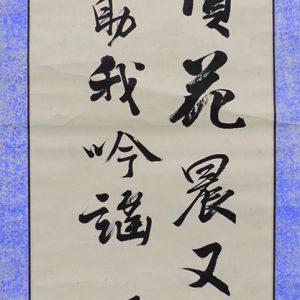 花晨又
助我吟謠